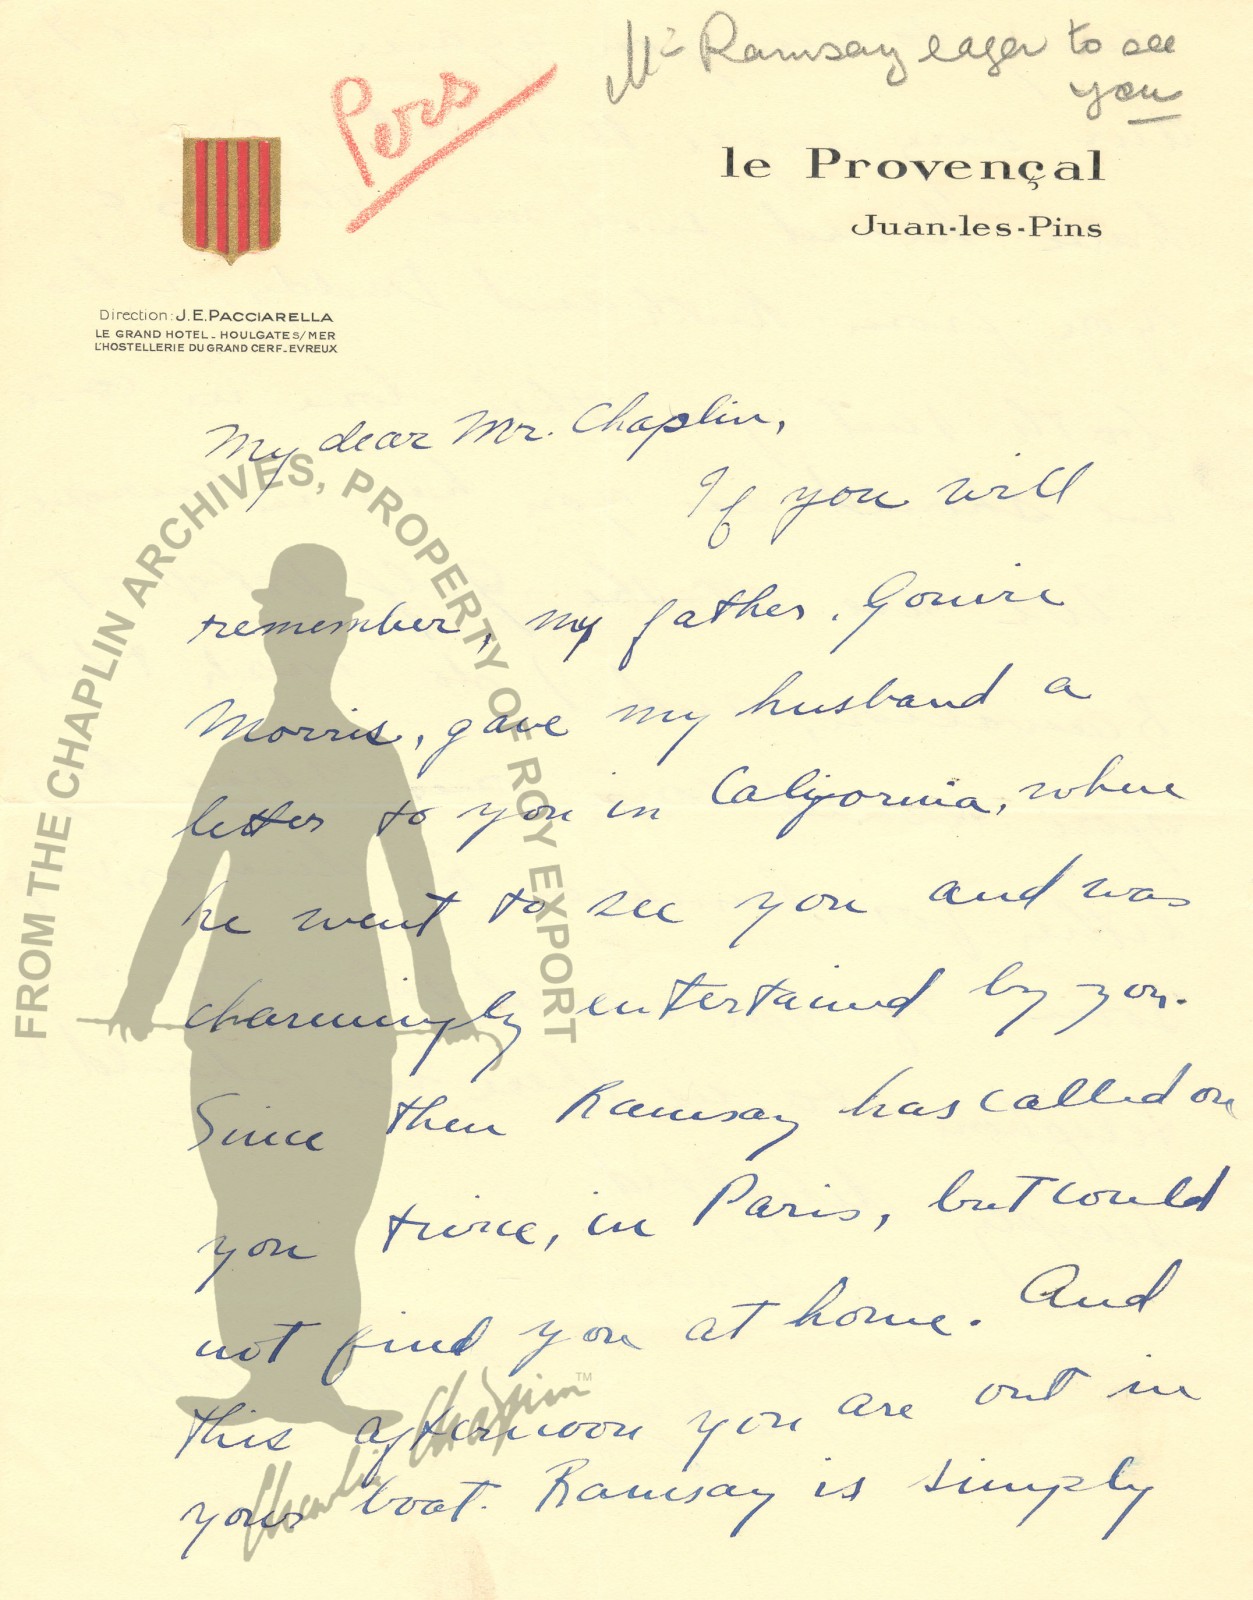 Mr Ramsay eager to see
you
Pers
le Provençal
Juan-les-Pins
Direction: J.E. PACCIARELLA
LE GRAND HOTEL - HOULGATE S/MER
L'HOSTELLERIE DU GRAND CERF - EVREUX
My dear Mr. Chaplin,
If you will
remember, my father, Gouverneur
Morris, gave my husband a
letter to you in California, where
he went to see you and was
charmingly entertained by you.
Since then Ramsay has called on
you twice, in Paris, but could
not find you at home. And
this afternoon you are out in
your boat. Ramsay is simply
FROM THE CHAPLIN ARCHIVES, PROPERTY OF ROY EXPORT
Charlie Chaplin™